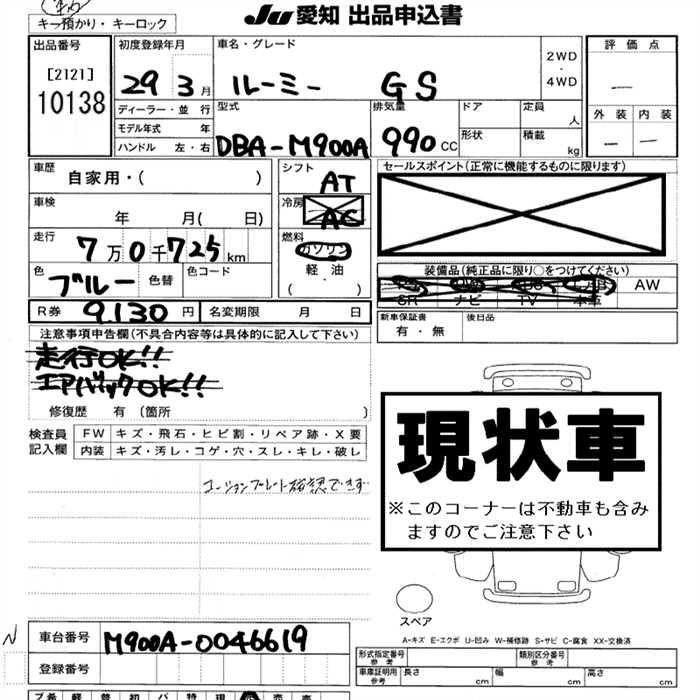 JU 愛知 出品申込書
キー預かり・キーロック
出品番号
[2121]
10138
初度登録年月
29 3月
車名・グレード
ルーミー GS
2WD
・
4WD
評価点
—
外装 内装
— —
ディーラー・並 行
モデル年式 年
ハンドル 左・右
型式
DBA-M900A
排気量
990 CC
ドア
形状
定員
人
積載
kg
車歴
自家用・( )
車検
年 月( 日)
走行
7万0千725km
色
ブルー
色替
色コード
シフト
AT
冷房
AC
燃料
ガソリン
軽・油
( ・ )
セールスポイント(正常に機能するものに限ります)
装備品(純正品に限り○をつけてください)
AW
SR ナビ TV 本革
R券 9,130 円
名変期限 月 日
新車保証書
有・無
後日品
注意事項申告欄(不具合内容等は具体的に記入して下さい)
走行OK!!
エアバックOK!!
修復歴 有 〔箇所 〕
検査員
記入欄
FW キズ・飛石・ヒビ割・リペア跡・X要
内装 キズ・汚レ・コゲ・穴・スレ・キレ・破レ
コーションプレート確認できず
現状車
※このコーナーは不動車も含み
ますのでご注意下さい
スペア
A-キズ E-エクボ U-凹み W-補修跡 S-サビ C-腐食 XX-交換済
N
車台番号 M900A-0046619
登録番号
型式指定番号
参考
類別区分番号
参考
車庫証明用
参考
長さ cm
幅 cm
高さ cm